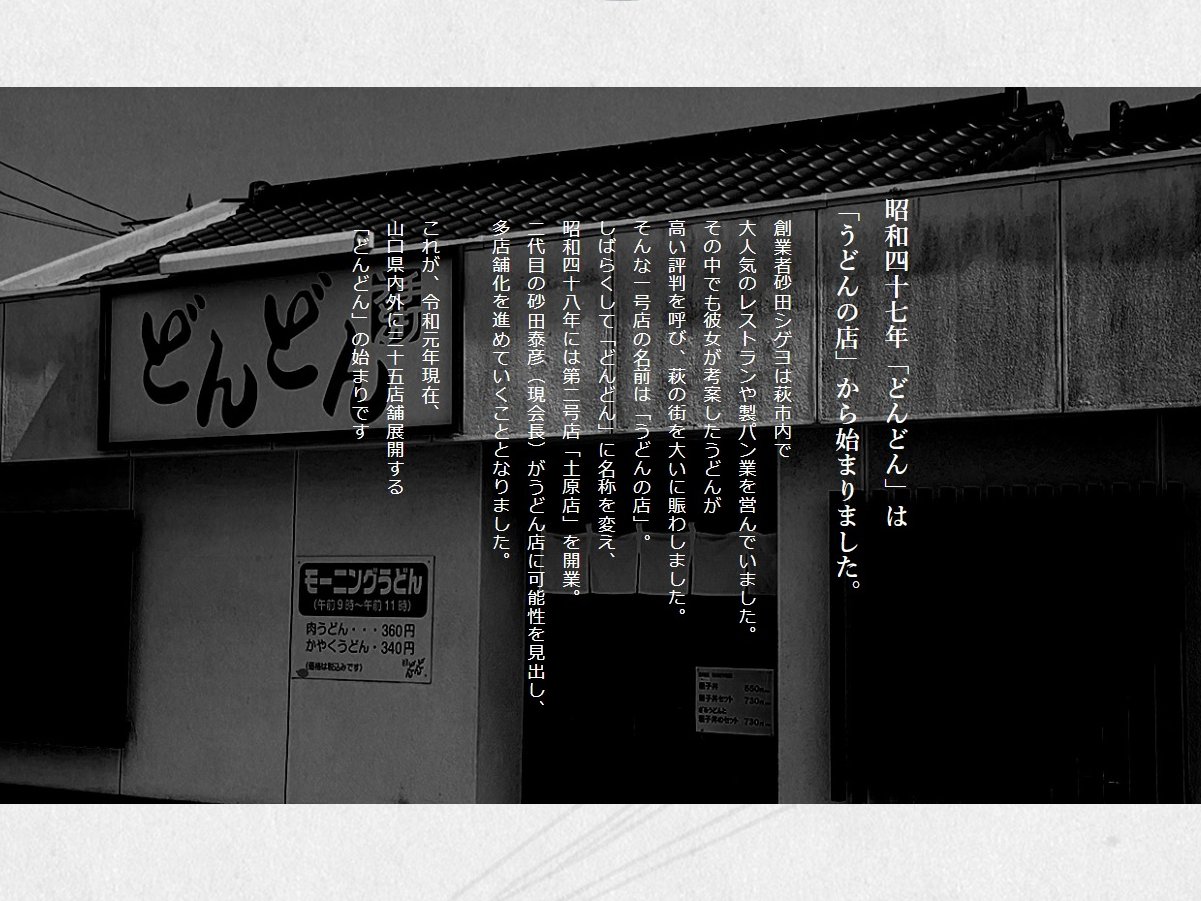 昭和四十七年「どんどん」は
「うどんの店」から始まりました。
創業者砂田シゲヨは萩市内で
大人気のレストランや製パン業を営んでいました。
その中でも彼女が考案したうどんが
高い評判を呼び、萩の街を大いに賑わしました。
そんな一号店の名前は「うどんの店」。
しばらくして「どんどん」に名称を変え、
昭和四十八年には第二号店「土原店」を開業。
二代目の砂田泰彦（現会長）がうどん店に可能性を見出し、
多店舗化を進めていくこととなりました。
これが、令和元年現在、
山口県内外に三十五店舗展開する
「どんどん」の始まりです
どんどん
モーニングうどん
（午前9時～午前11時）
肉うどん・・・360円
かやくうどん・340円
（価格は税込みです）
どんどん
550円
730円
730円